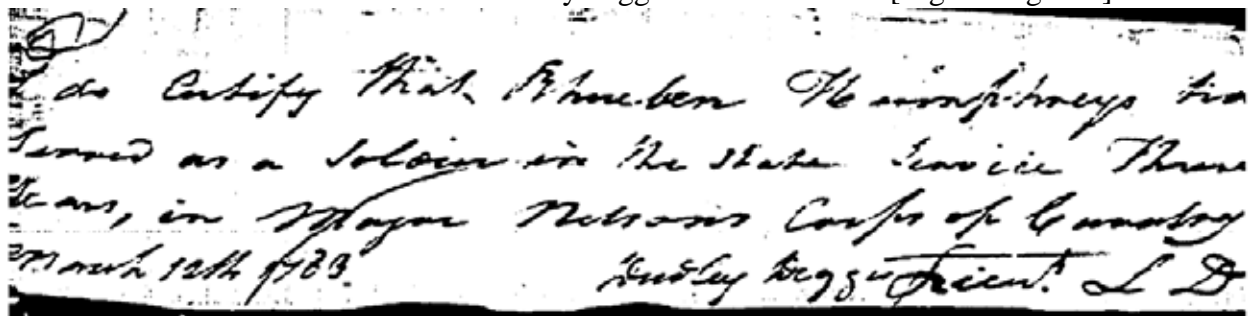 I do Certify that Rhueben Humphreys has
Served as a Soldier in the State Service Three
Years, in Major Nelsons Corps of Cavalry
March 12th 1783. Dudley Digges Lieut. L D